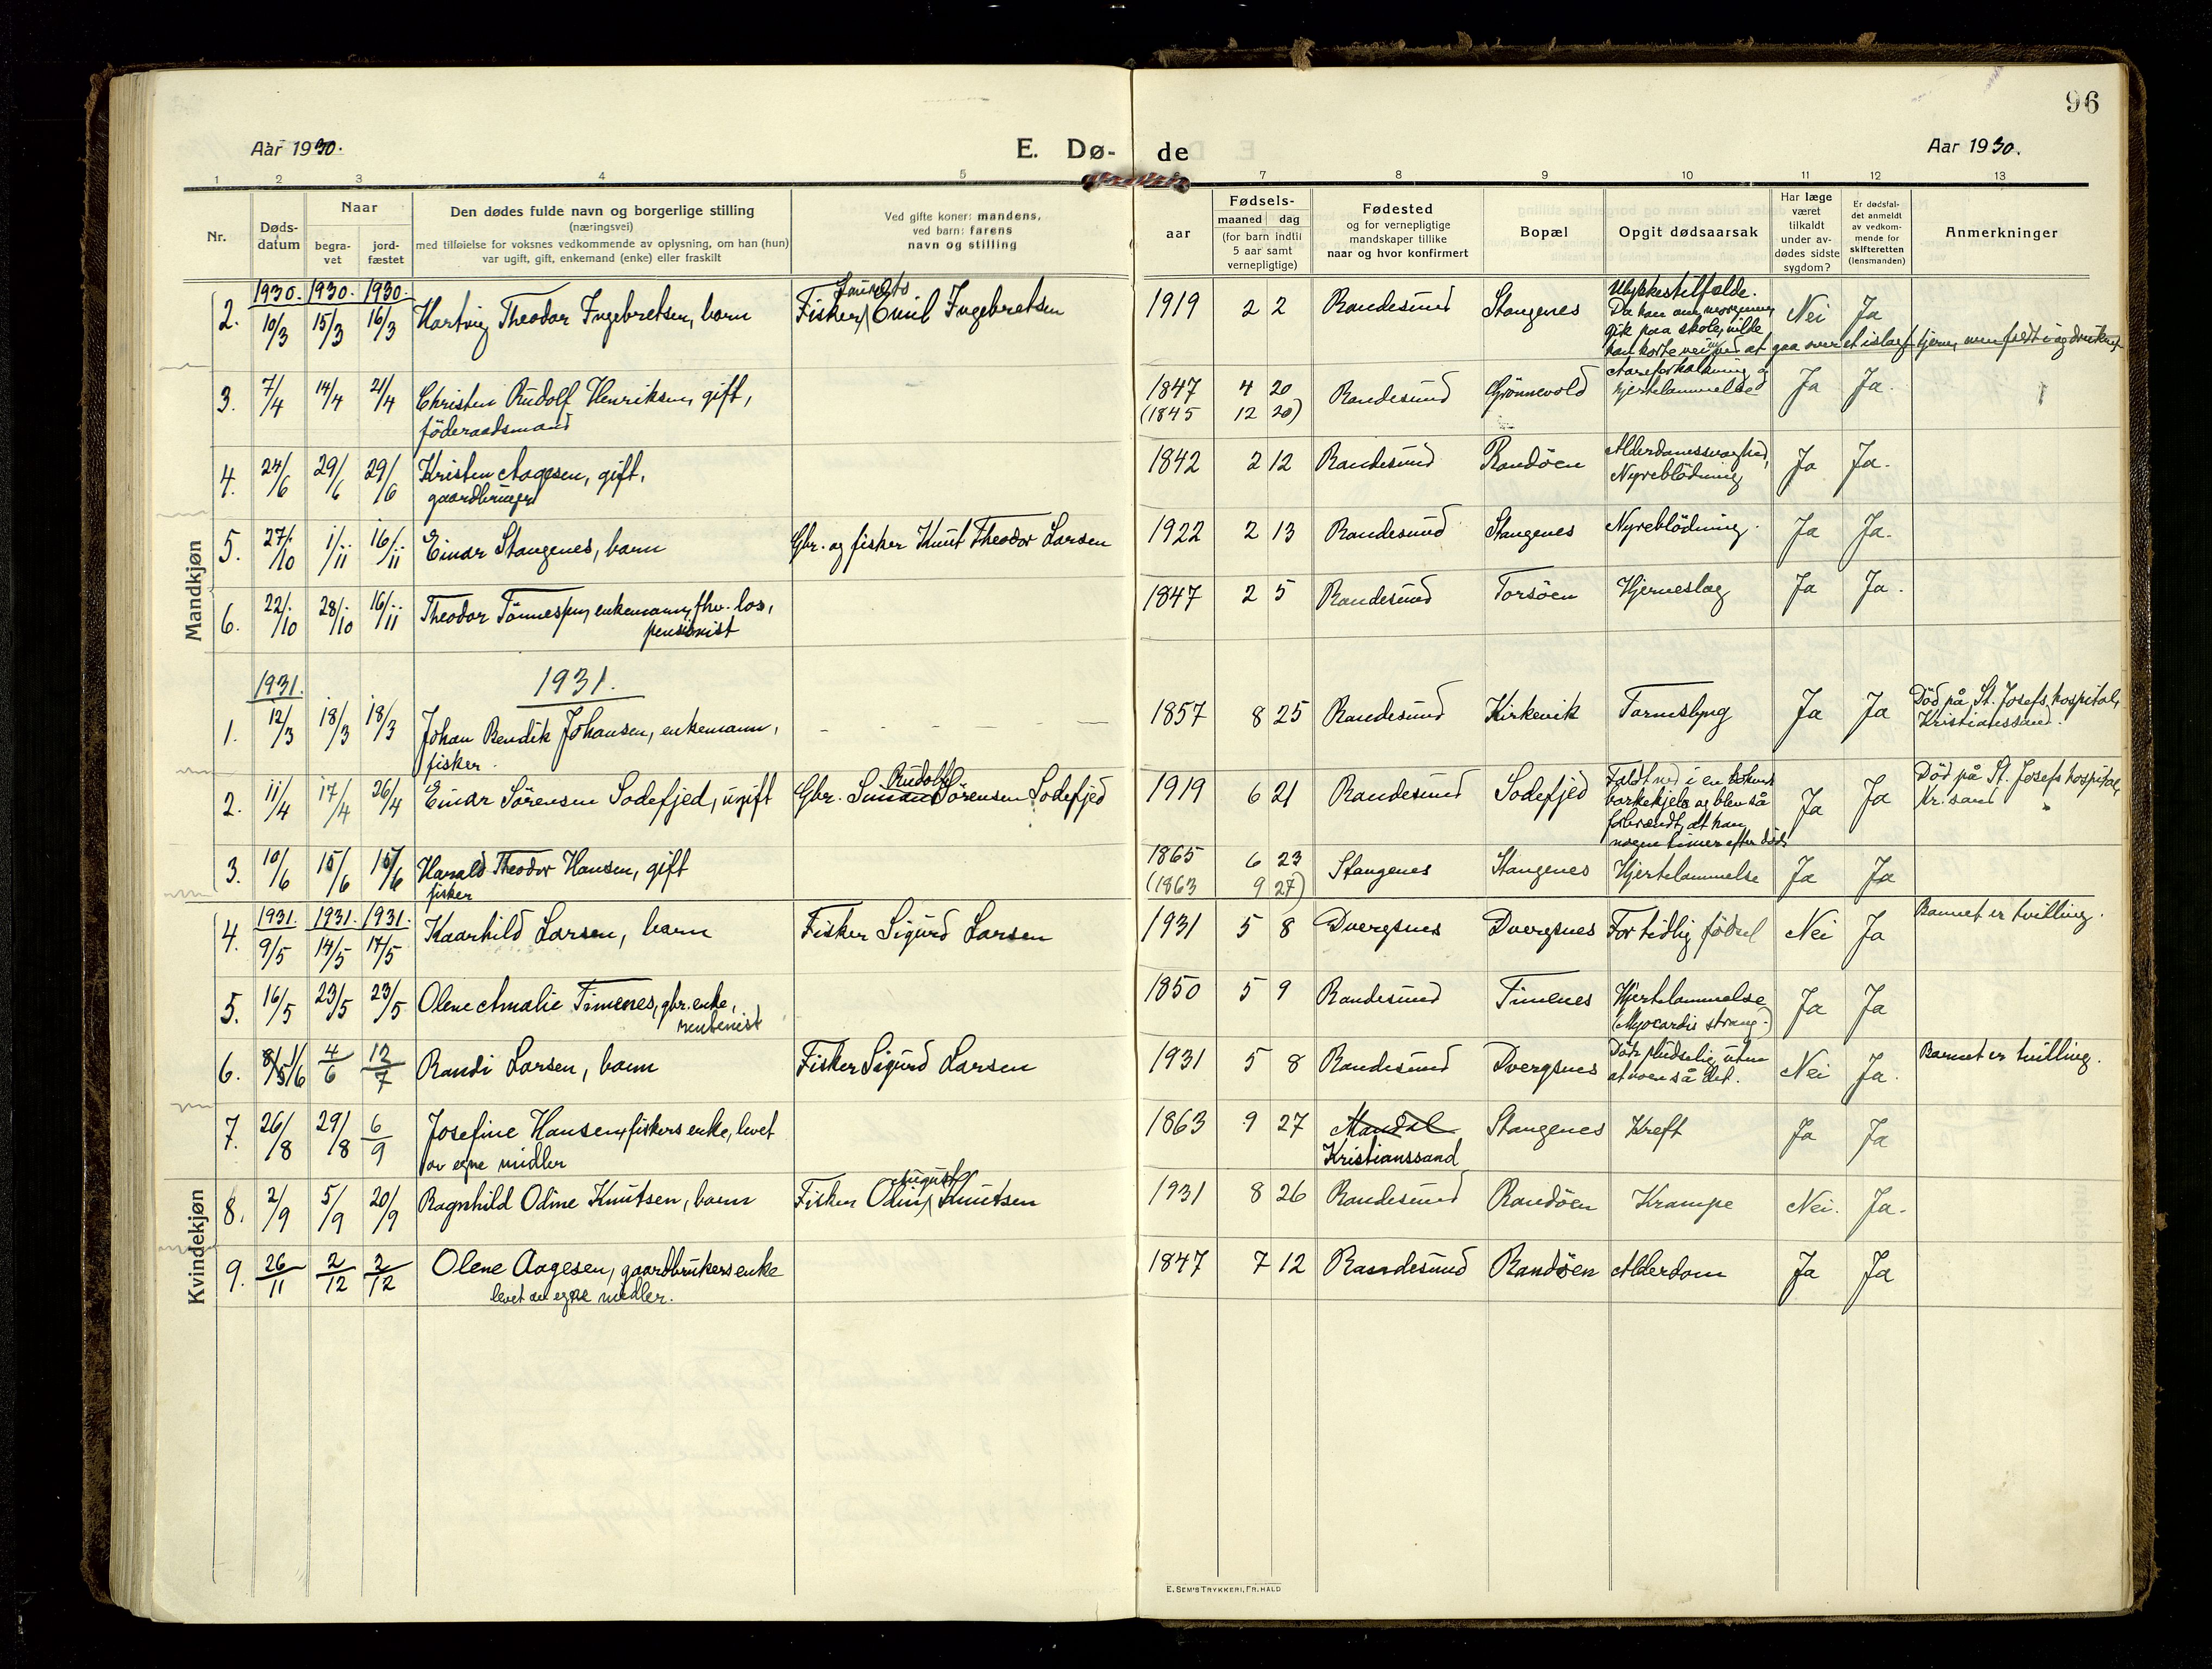 96
Aar 1930.
E. Dø-
de
Aar 1930.
1 2 3 4 5 7 8 9 10 11 12 13
Nr.
Døds-
datum
Naar
begra-
vet
jord-
fæstet
Den dødes fulde navn og borgerlige stilling
(næringsvei)
med tilføielse for voksnes vedkommende av oplysning, om han (hun)
var ugift, gift, enkemand (enke) eller fraskilt
Ved gifte koner: mandens,
ved barn: farens
navn og stilling
aar
Fødsels-
maaned dag
(for barn indtil
5 aar samt
vernepligtige)
Fødested
og for vernepligtige
mandskaper tillike
naar og hvor konfirmert
Bopæl
Opgit dødsaarsak
Har læge
været
tilkaldt
under av-
dødes sidste
sygdom?
Er dødsfal-
det anmeldt
av vedkom-
mende for
skifteretten
(lensmanden)
Anmerkninger
Mandkjøn
1930. 1930. 1930.
2. 10/3 15/3 16/3 Hartvig Theodor Ingebretsen, barn
Laurits
Fisker Emil Ingebretsen
1919 2 2 Randesund Stangenes
Ulykkestilfælde.
Da han om morgenen
gik paa skole, vilde
han korte veien ved at gaa over et islagt tjern, men faldt i og druknet
Nei Ja
3. 7/4 14/4 21/4 Christen Rudolf Henriksen, gift,
föderaadsmand
1847 4 20
(1845 12 20)
Randesund Grønnevold
Aareforkalkning og
hjertelammelse
Ja Ja.
4. 24/6 29/6 29/6 Kristen Aagesen, gift,
gaardbruger
1842 2 12 Randesund Randöen
Alderdomssvaghed,
Nyreblödning
Ja Ja.
5. 27/10 1/11 16/11 Einar Stangenes, barn
Gbr. og fisker Knut Theodor Larsen
1922 2 13 Randesund Stangenes Nyreblödning. Ja Ja.
6. 22/10 28/10 16/11 Theodor Tönnesen, enkemann, fhv. los,
pensionist
1847 2 5 Randesund Torsöen Hjerneslag Ja Ja.
1931. 1931.
1. 12/3 18/3 18/3 Johan Bendik Johansen, enkemann,
fisker.
1857 8 25 Randesund Kirkevik Tarmslyng Ja Ja
Död på St. Josefs hospital,
Kristianssand.
2. 11/4 17/4 26/4 Einar Sörensen Sodefjed, ugift
Rudolf
Gbr. Sörensen Sodefjed
1919 6 21 Randesund Sodefjed
Faldt ned i en
barkekjele og blev så
forbrændt, at han
nogen timer efter döde
Ja Ja
Död på St. Josefs hospital,
Kr.sand
3. 10/6 15/6 15/6 Harald Theodor Hansen, gift
fisker
1865 6 23
(1863 9 27)
Stangenes Stangenes Hjertelammelse Ja Ja
Kvindekjøn
1931. 1931. 1931.
4. 9/5 14/5 17/5 Kaarhild Larsen, barn
Fisker Sigurd Larsen
1931 5 8 Dvergsnes Dvergsnes For tidlig födsel Nei Ja
Barnet er tvilling.
5. 16/5 23/5 23/5 Olene Amalie Timenes, gbr. enke,
rentenist
1850 5 9 Randesund Timenes
Hjertelammelse
Ja Ja
6. 1/6 4/6 12/7 Randi Larsen, barn
Fisker Sigurd Larsen
1931 5 8 Randesund Dvergsnes
Döde pludselig uten
at noen så det.
Nei Ja.
Barnet er tvilling.
7. 26/8 29/8 6/9 Josefine Hansen, fiskers enke, levet
av egne midler
1863 9 27 Mandal
Kristianssand
Stangenes Kreft Ja Ja
8. 2/9 5/9 20/9 Ragnhild Odine Knutsen, barn
August
Fisker Odin Knutsen
1931 8 26 Randesund Randöen Krampe Nei. Ja.
9. 26/11 2/12 2/12 Olene Aagesen, gaardbrukers enke
levet av egne midler.
1847 7 12 Randesund Randöen Alderdom Ja Ja
E. SEM'S TRYKKERI, FR. HALD